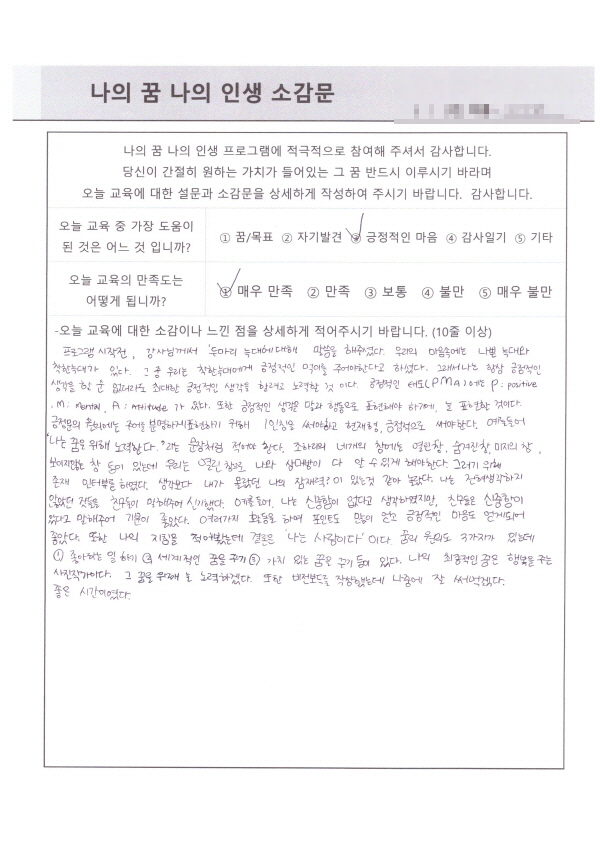 나의 꿈 나의 인생 소감문
나의 꿈 나의 인생 프로그램에 적극적으로 참여해 주셔서 감사합니다.
당신이 간절히 원하는 가치가 들어있는 그 꿈 반드시 이루시기 바라며
오늘 교육에 대한 설문과 소감문을 상세하게 작성하여 주시기 바랍니다. 감사합니다.
오늘 교육 중 가장 도움이
된 것은 어느 것 입니까?
① 꿈/목표 ② 자기발견 ③ 긍정적인 마음 ④ 감사일기 ⑤ 기타
오늘 교육의 만족도는
어떻게 됩니까?
① 매우 만족 ② 만족 ③ 보통 ④ 불만 ⑤ 매우 불만
-오늘 교육에 대한 소감이나 느낀 점을 상세하게 적어주시기 바랍니다. (10줄 이상)
프로그램 시작전, 강사님께서 '두마리 늑대'에 대해 말씀을 해주셨다. 우리의 마음속에는 나쁜 늑대와
착한늑대가 있다. 그 중 우리는 착한늑대에게 긍정적인 먹이를 주어야한다고 하셨다. 그래서 나는 항상 긍정적인
생각을 할 순 없더라도 최대한 긍정적인 생각을 하려고 노력할 것 이다. 긍정적인 태도(P.M.A)에는 P: positive
, M: Mental, A: Attitude 가 있다. 또한 긍정적인 생각은 말과 행동으로 표현해야 하기에, 표현할 것이다.
긍정문의 원칙에는 주어를 분명하게 표현하기 위해 1인칭을 써야하고 현재형, 긍정적으로 써야한다. 예를들어
"나는 꿈을 위해 노력한다." 라는 문장처럼 적어야 한다. 조하리의 네개의 창에는 열린창, 숨겨진창, 미지의 창,
보이지않는 창 등이 있는데 우리는 열린 창으로 나와 상대방이 다 알 수 있게 해야한다. 그러기 위해
존재 인터뷰를 하였다. 생각보다 내가 몰랐던 나의 잠재력? 이 있는것 같아 놀랐다. 나는 전혀생각하지
않았던 것들을 친구들이 말해주어 신기했다. 예를 들어, 나는 신중함이 없다고 생각하였지만, 친구들은 신중함이
있다고 말해주어 기분이 좋았다. 여러가지 활동을 하여 포인트도 많이 얻고 긍정적인 마음도 얻게되어
좋았다. 또한 나의 지침을 적어봤는데 결론은 '나는 사람이다' 이다. 꿈의 원칙도 3가지가 있는데
① 좋아하는 일 하기 ② 세계적인 꿈을 꾸기 ③ 가치 있는 꿈은 꾸기 등이 있다. 나의 최종적인 꿈은 행복을 주는
사진작가이다. 그 꿈을 위해 노력하겠다. 또한 비전보드를 작성했는데 나중에 잘 써먹겠다.
좋은 시간이였다.